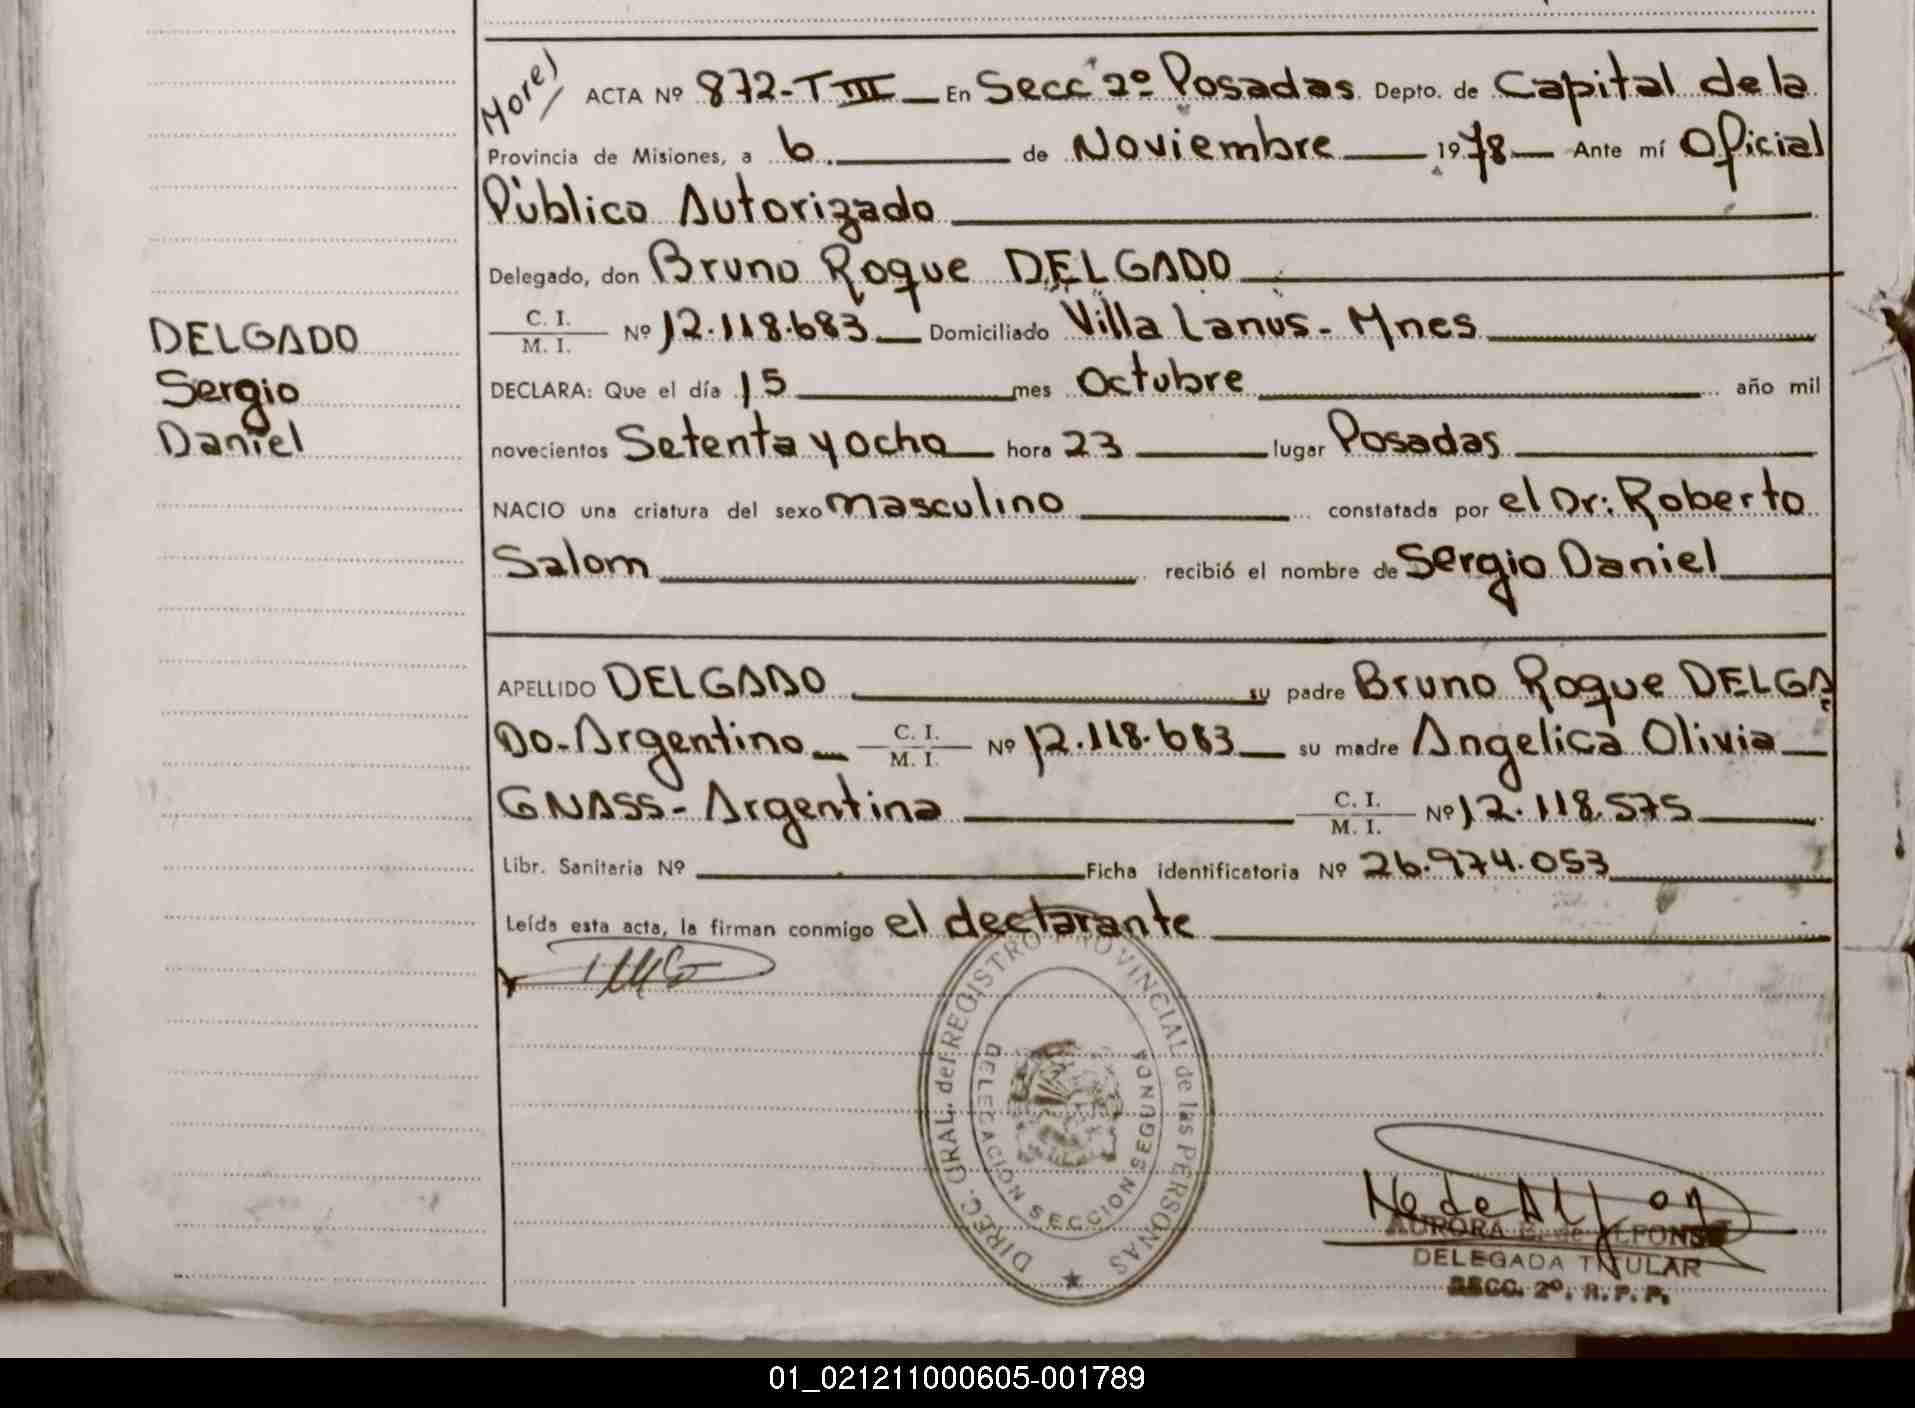 Morel
ACTA Nº 872-TIII En Secc 2º Posadas Depto. de Capital de la
Provincia de Misiones, a 6 de Noviembre 1978 Ante mí Oficial
Público Autorizado
Delegado, don Bruno Roque DELGADO
C. I.
M. I. Nº 12.118.683 Domiciliado Villa Lanus - Mnes
DELGADO
Sergio
Daniel
DECLARA: Que el día 15 mes Octubre año mil
novecientos Setenta y ocho hora 23 lugar Posadas
NACIO una criatura del sexo masculino constatada por el Dr: Roberto
Salom recibió el nombre de Sergio Daniel
APELLIDO DELGADO su padre Bruno Roque DELGA
DO - Argentino C. I. M. I. Nº 12.118.683 su madre Angelica Olivia
GNASS - Argentina C. I. M. I. Nº 12.118.575
Libr. Sanitaria Nº Ficha identificatoria Nº 26.974.053
Leída esta acta, la firman conmigo el declarante
DIREC. GRAL. del REGISTRO PROVINCIAL de las PERSONAS
DELEGACION SECCION SEGUNDA
AURORA de ALFONSO
DELEGADA TITULAR
SECC. 2º. R. P. P.
01_021211000605-001789